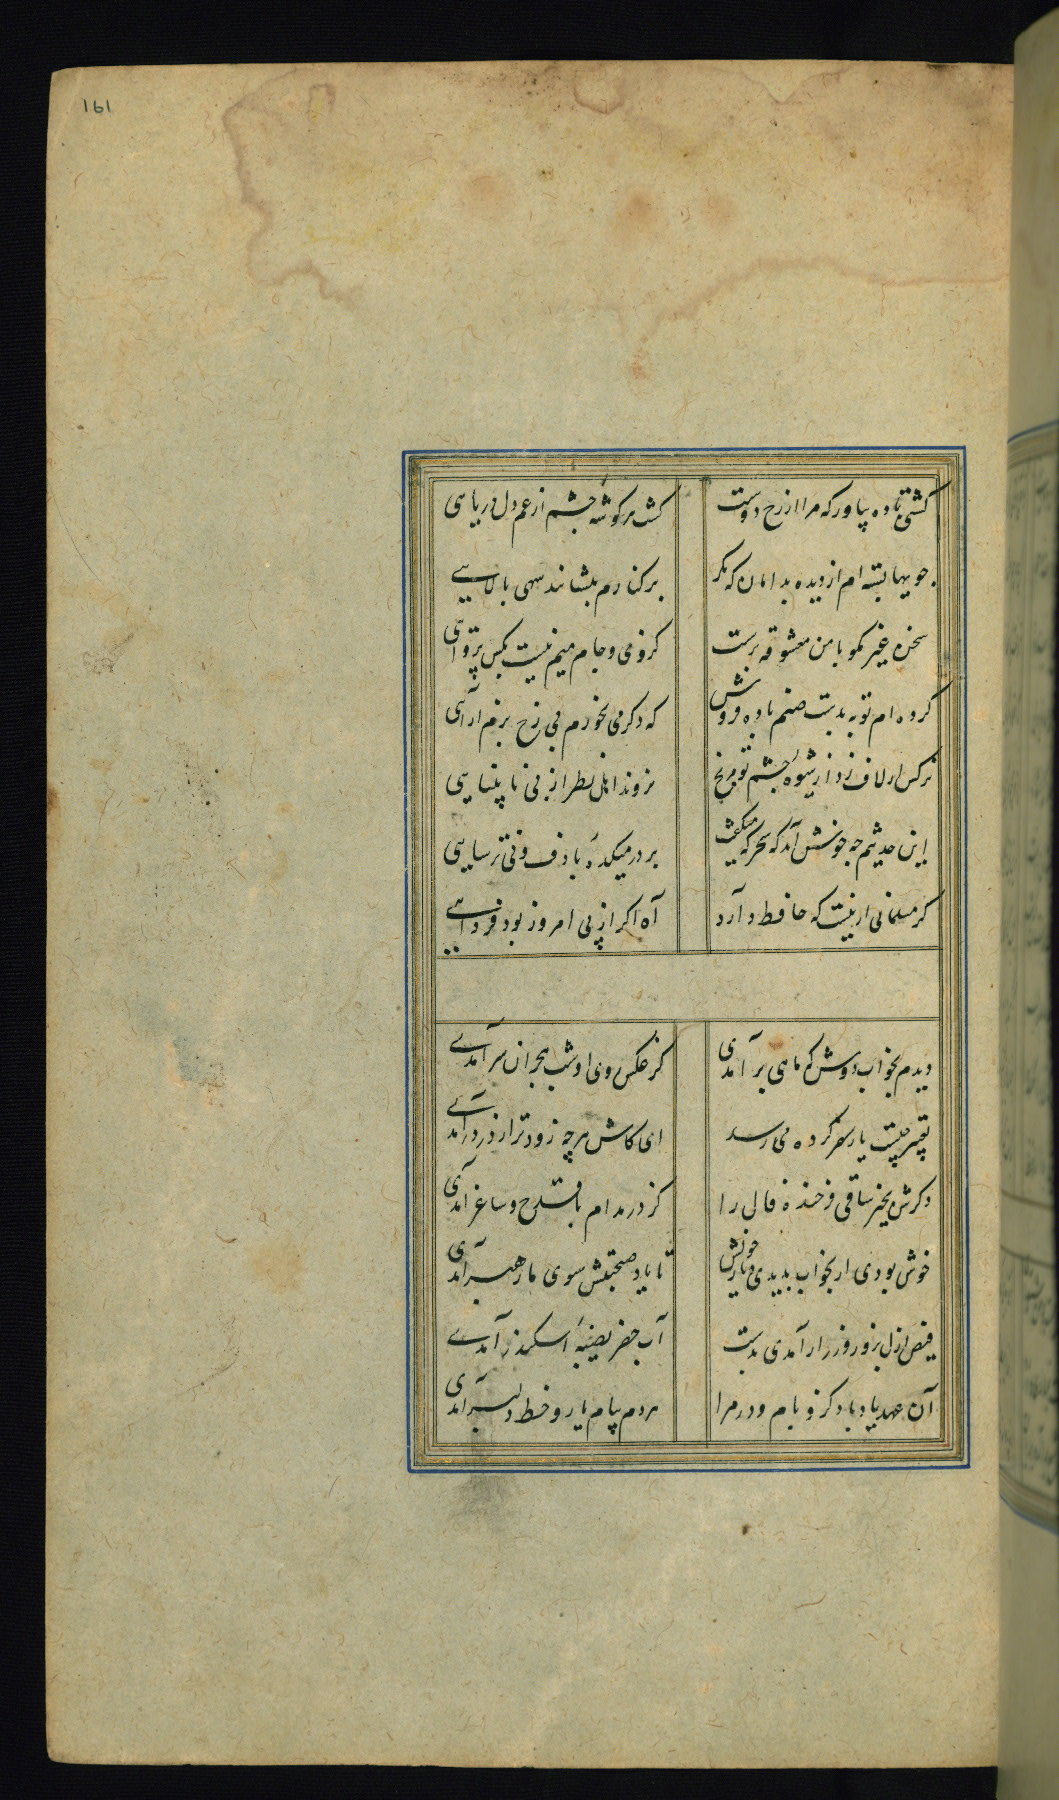 161
کشتی باده بیاور که مرا از رخ دوست
کشت هر کوشه چشم از غم دل دریایی
جویها بسته ام از دیده بدامان که مکر
بر کنارم بنشانند سهی بالایی
سخن غیر مکو با من معشوقه پرست
کز وی و جام میم نیست بکس پروایی
کرده ام توبه بدست صنم باده فروش
که دکر می نخورم بی رخ بزم آرایی
نرکس ار لاف زد از شیوه چشم تو مرنج
نروند اهل نظر از پی نابینایی
این حدیثم چه خوش آمد که سحرکه میکفت
بر در میکده با دف و نی ترسایی
کر مسلمانی از اینست که حافظ دارد
آه اکر از پی امروز بود فردایی
دیدم بخواب دوش که ماهی بر آمدی
کز عکس روی او شب هجران سر آمدی
تعبیر چیست یار سفر کرده می رسد
ای کاش هر چه زودتر از در در آمدی
ذکرش بخیر ساقی فرخنده فال را
کز در مدام با قدح و ساغر آمدی
خوش بودی ار بخواب بدیدی دیار خویش
تا یاد صحبتش سوی ما رهبر آمدی
فیض ازل بزور و زر ار آمدی بدست
آب خضر نصیبه اسکندر آمدی
آن عهد یاد باد که از بام و در مرا
هردم پیام یار و خط دلبر آمدی